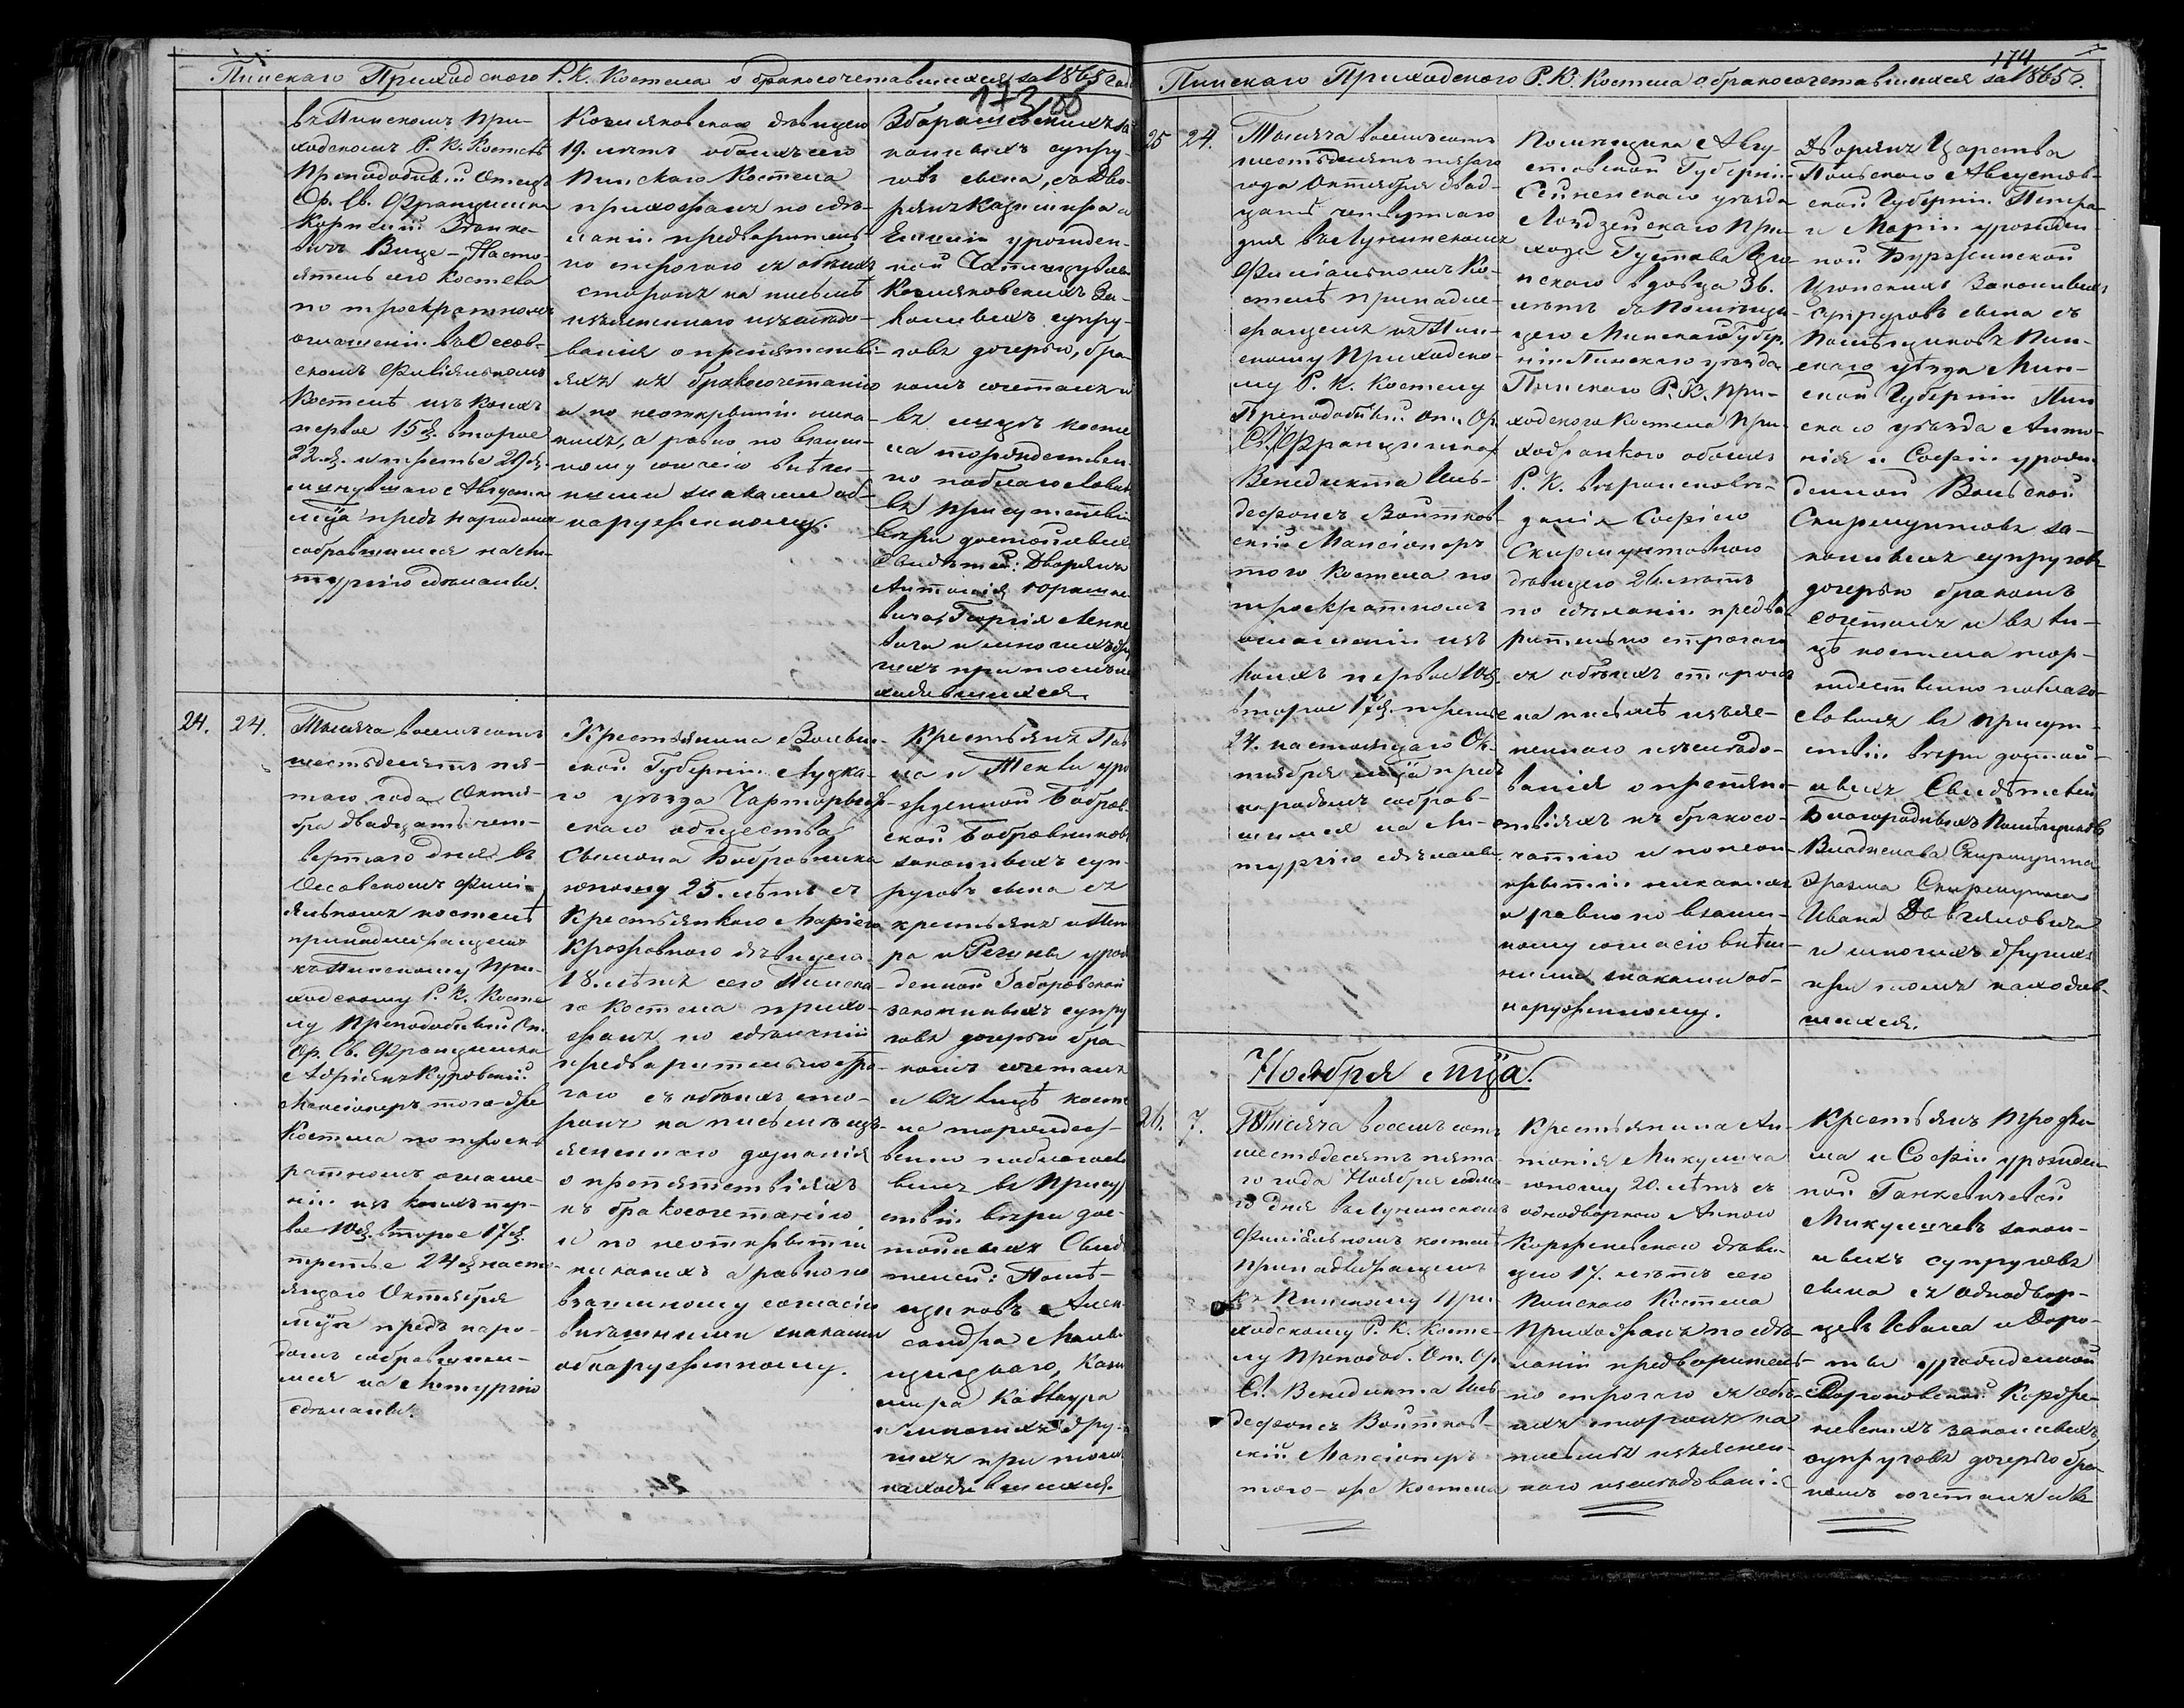 Пинскаго Приходскаго Р. К. Костела о бракосочетавшихся за 1865 годъ
173
въ Пинскомъ При-
ходскомъ Р. К. Костелѣ
Преподобный Отецъ
Ор. Св. Франциска
Корнелій
Вице-Насто-
ятель сего Костела
по троекратномъ
оглашеніи въ Осов-
скомъ Филіяльномъ
Костелѣ изъ коихъ
первое 15 д. второе
22. д. и третье 29 д.
минувшаго Августа
мца предъ народомъ
собравшимся на Ли-
тургію сдѣланы.
Козляковскою дѣвицею
19. лѣтъ обоихъ сего
Пинскаго Костела
прихожанъ по сдѣ-
ланіи предваритель-
но строгаго съ обѣихъ
сторонъ на письмѣ
изъясненнаго изслѣдо-
ванія о препятстві-
яхъ къ бракосочетанію
и по неоткрытіи ника-
кихъ, а равно по взаим-
ному согласію внѣш-
ними знаками об-
наруженному.
за-
конныхъ супру-
говъ сына, съ Дво-
рянъ Казимира и
Емиліи урожден-
ной
Козляковскихъ За-
конныхъ супру-
говъ дочерью, бра-
комъ сочеталъ и
въ лицѣ косте
ла торжествен-
но поблагословилъ
въ присутствіи
вѣры достойныхъ
Свидѣтелей: Дворянъ
Антонія
Георгія
и многихъ дру
гихъ при томъ на
ходившихся.
24. 24.
Тысяча восемьсотъ
шестьдесятъ пя-
таго года Октя-
бра двадцать чет-
вертаго дня въ
Осовскомъ Фили-
яльномъ костелѣ
принадлежащемъ
къ Пинскому При-
ходскому Р. К. Косте
лу Преподобный От.
Ор. Св. Франциска
Адріянъ Куровскій
Мансіонеръ того-же
Костела по троек-
ратномъ оглаше-
ніи изъ коихъ пер-
вое 10 д. второе 17 д.
третье 24 д. насто-
ящаго Октября
мца предъ наро-
домъ собравшим-
мся на Литургію
сдѣланы.
Крестьянина Волын-
ской Губерніи Луцка-
го уѣзда Чарторый-
скаго общества
Сымона Бобровника
юношу 25. лѣтъ съ
Крестьянкою Маріею
дѣвицею
18. лѣтъ сего Пинска-
го Костела прихо-
жанъ по сдѣланіи
предварительно стро-
гаго съ обѣихъ сто-
ронъ на письмѣ изъ-
ясненнаго дознанія
о препятствіяхъ
къ бракосочетанію
и по неоткрытіи
никакихъ а равно по
взаимному согласію
внѣшними знаками
обнаруженному.
Крестьянъ Пав
ла и Теклы уро
жденной Бобров-
ской Бобровниковъ
законныхъ суп-
руговъ сына съ
крестьянъ Пет
ра и Регины урож
денной Заборовской
законныхъ супру
говъ дочерью бра-
комъ сочеталъ
и въ лицѣ косте
ла торжест-
венно поблагосло
вилъ въ присут
ствіи вѣры дос-
тойныхъ Свидѣ
телей: Помѣ-
щиковъ Алек-
сандра
Кази
мира
и многихъ дру-
гихъ при томъ
находившихся.
174
Пинскаго Приходскаго Р. К. Костела о бракосочетавшихся за 1865 г.
25 24.
Тысяча восемьсотъ
шестьдесятъ пятаго
года Октября двад-
цать четвертаго
дня въ Лунинскомъ
Филіальномъ Ко-
стелѣ принадле-
жащемъ къ Пин-
скому Приходско-
му Р. К. Костелу
Преподобный От. Ор.
Св. Франциска
Венедикта Иль-
дефонсъ Войтков-
скій Мансіонеръ
того Костела по
троекратномъ
оглашеніи изъ
коихъ первое 10 д.
второе 17 д. третье
24. настоящаго Ок-
тября мца предъ
народомъ собрав-
шимся на Ли-
тургію сдѣланы.
Помѣщика Авгу-
стовской Губерніи
Сейненскаго уѣзда
Лоздзейскаго При-
хода Густава
вдовца 36.
лѣтъ съ Помѣщи-
цею Минской Губер-
ніи Пинскаго уѣзда
Пинскаго Р. К. При-
ходскаго Костела При-
хожанкою обоихъ
Р. К. вѣроисповѣ-
данія Софіею
Скирмунтовною
дѣвицею 26 лѣтъ
по сдѣланіи предва
рительно строгаго
съ обѣихъ сторонъ
на письмѣ изъяс-
неннаго изслѣдо-
ванія о препят-
ствіяхъ къ бракосо-
четанію и по неот-
крытіи никакихъ
а равно по взаим-
ному согласію внѣш-
ними знаками об-
наруженному.
Дворянъ Царства
Польскаго Августов-
ской Губерніи Петра
и Маріи урожден-
ной
Законныхъ
Супруговъ сына съ
Помѣщиковъ Пин-
скаго уѣзда Мин-
ской Губерніи Пин
скаго уѣзда Анто-
нія и Софіи урож-
денной
Скирмунтовъ за-
конныхъ супруговъ
дочерью бракомъ
сочеталъ и въ ли-
цѣ костела тор-
жественно поблаго-
словилъ въ присут-
ствіи вѣры достой-
ныхъ Свидѣтелей
Благородныхъ Помѣщиковъ
Владислава Скирмунта
Скирмунта
Ивана
и многихъ другихъ
при томъ находив-
шихся.
Ноября мца.
26. 7.
Тысяча восемьсотъ
шестьдесятъ пята-
го года Ноября седма-
го дня въ Лунинскомъ
Филіальномъ костелѣ
принадлежащемъ
къ Пинскому При-
ходскому Р. К. Косте-
лу Преподоб. От. Ор.
Св. Венедикта Иль-
дефонсъ Войтков-
скій Мансіонеръ
того-же Костела
Крестьянина Ан-
тонія Микулича
юношу 20. лѣтъ съ
однодворкою Анною
дѣви-
цею 17. лѣтъ сего
Пинскаго Костела
Прихожанъ по сдѣ-
ланіи предваритель-
но строгаго съ обѣ-
ихъ сторонъ на
письмѣ изъяснен-
наго изслѣдованія
Крестьянъ Трофи-
ма и Софіи урожден
ной Ганкевичевой
Микуличевъ закон-
ныхъ супруговъ
сына съ Однодвор-
цевъ Ивана и Доро-
ты урожденной
законныхъ
супруговъ дочерью бра-
комъ сочеталъ и въ